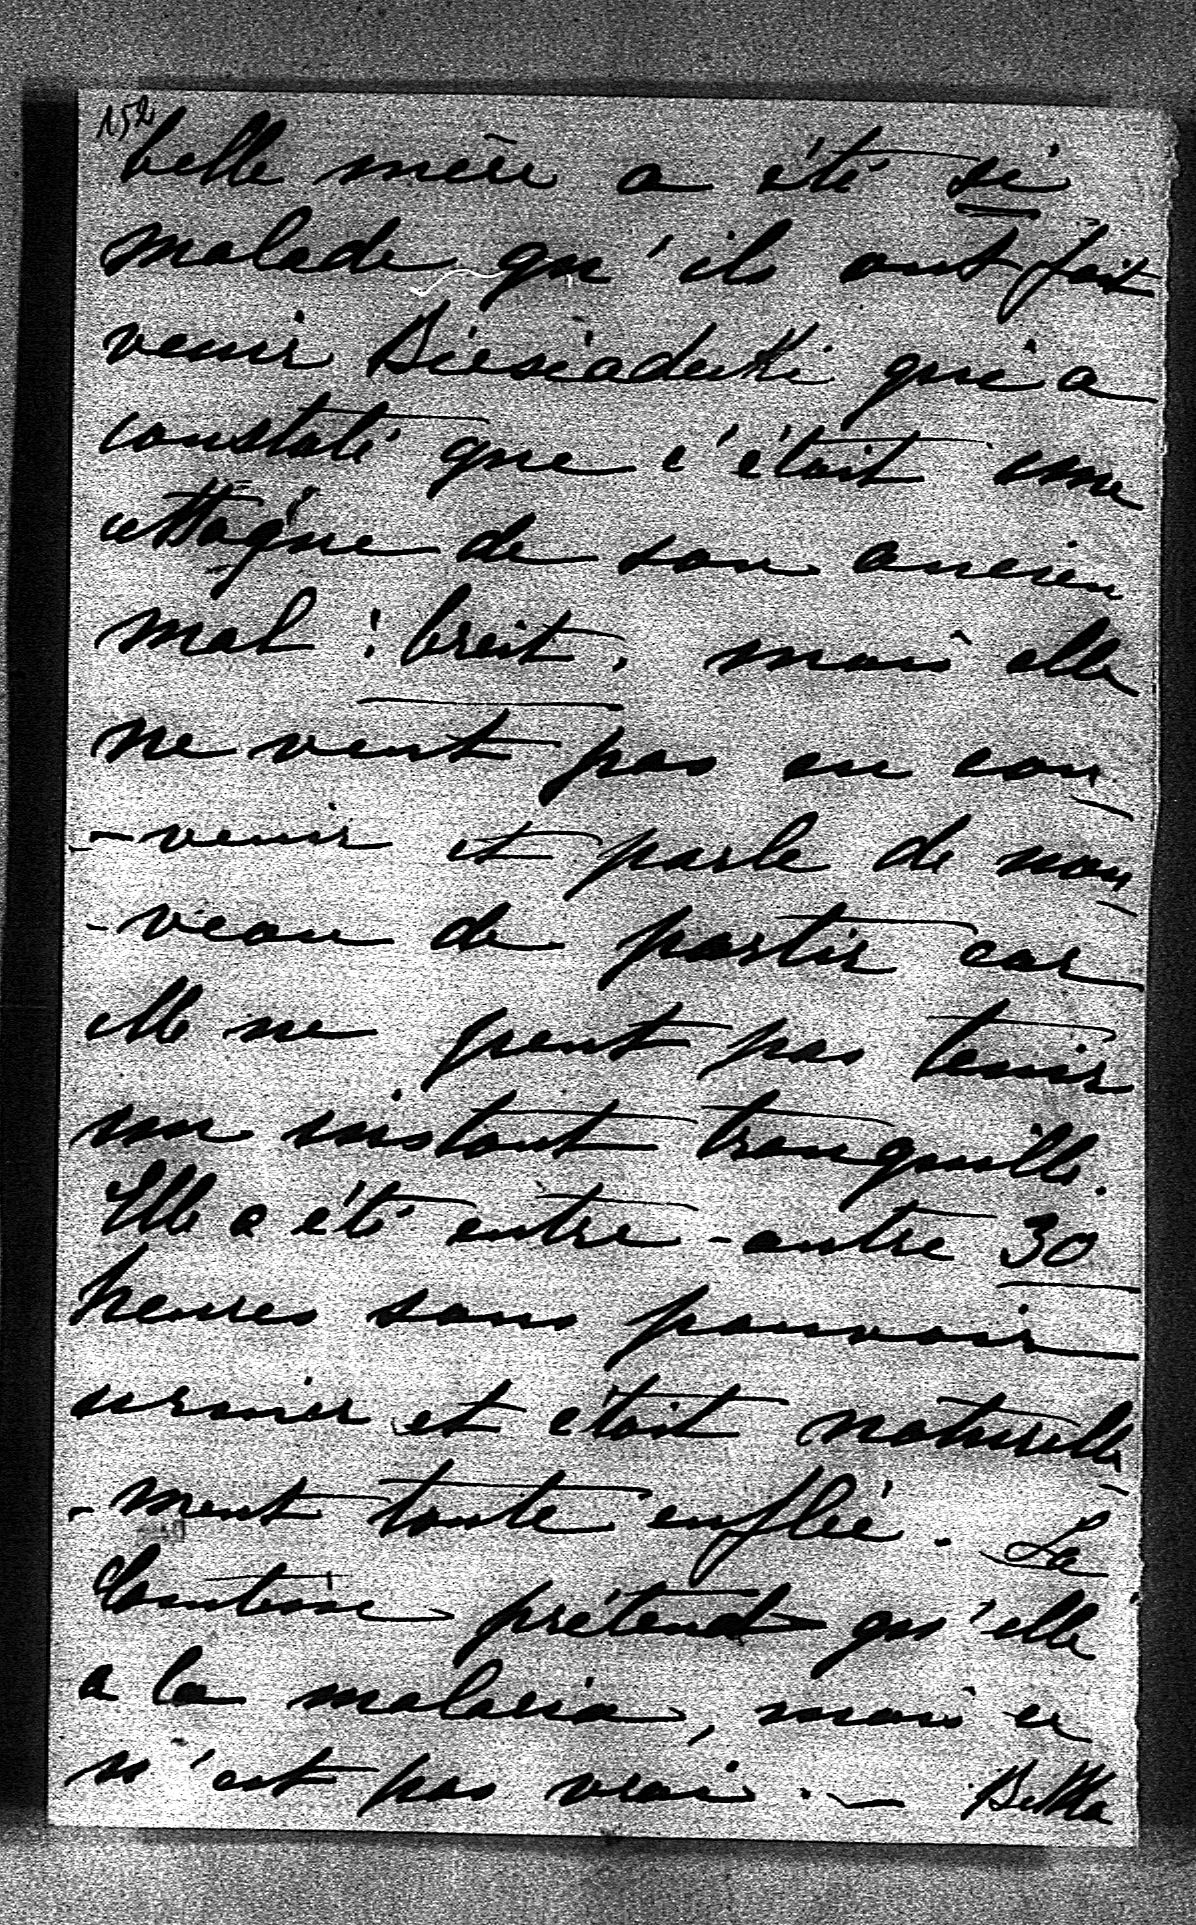 152
belle mère a été si
malade qu'ils ont fait
venir Biesiadecki qui a
constaté que c'était une
attaque de son ancien
mal : breit, mais elle
ne veut pas en con
-venir et parle de nou
-veau de partir car
elle ne peut pas tenir
un instant tranquille.
Elle a été entre-autre 30
heures sans pouvoir
uriner et était naturelle
-ment toute enflée. La
Comtesse prétend qu'elle
a la malaria, mais ce
n'est pas vrai. — Betka